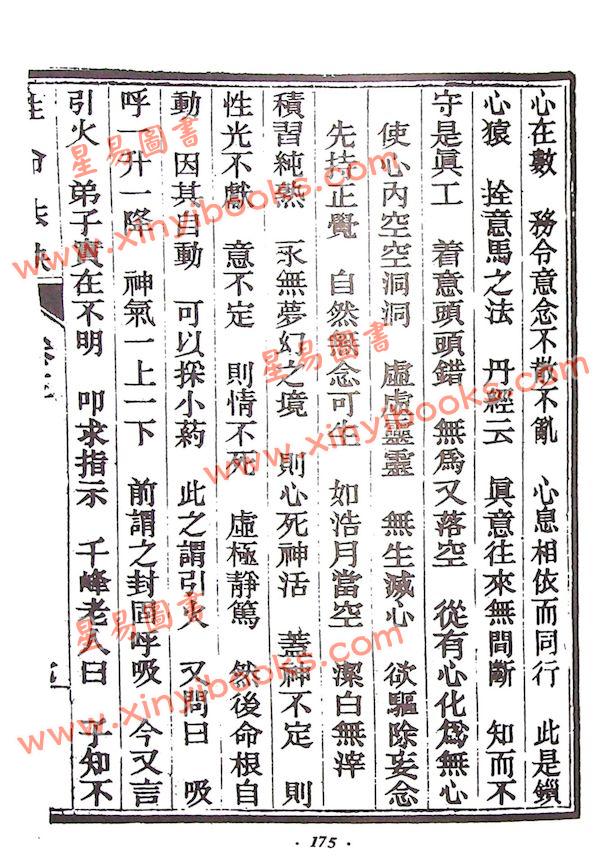 心在數　務令意念不散不亂　心息相依而同行　此是鎖
心猿　拴意馬之法　丹經云　眞意往來無間斷　知而不
守是眞工　着意頭頭錯　無爲又落空　從有心化爲無心
使心內空空洞洞　虛虛靈靈　無生滅心　欲驅除妄念
先持正覺　自然無念可生　如浩月當空　潔白無滓
積習純熟　永無夢幻之境　則心死神活　蓋神不定　則
性光不獻　意不定　則情不死　虛極靜篤　然後命根自
動　因其自動　可以採小葯　此之謂引火　又問曰　吸
呼一升一降　神氣一上一下　前謂之封固呼吸　今又言
引火　弟子實在不明　叩求指示　千峰老人曰　子知不
性命法訣
175
星易圖書
www.xinyibooks.com
星易圖書
www.xinyibooks.com
星易圖書
www.xinyibooks.com